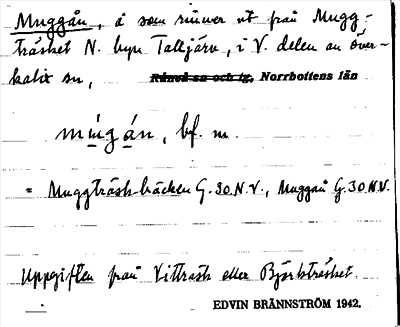 Muggån, å som rinner ut från Mugg-
träsket N. byn Talljärv, i V. delen av Över-
kalix sn, Råneå sn och tg, Norrbottens län
múgán, bf. m.
= Muggträsk-bäcken G. 30 N.V., Muggån G. 30 N.V.
Uppgiften från Vitträsk eller Björkträsket.
EDVIN BRÄNNSTRÖM 1942.